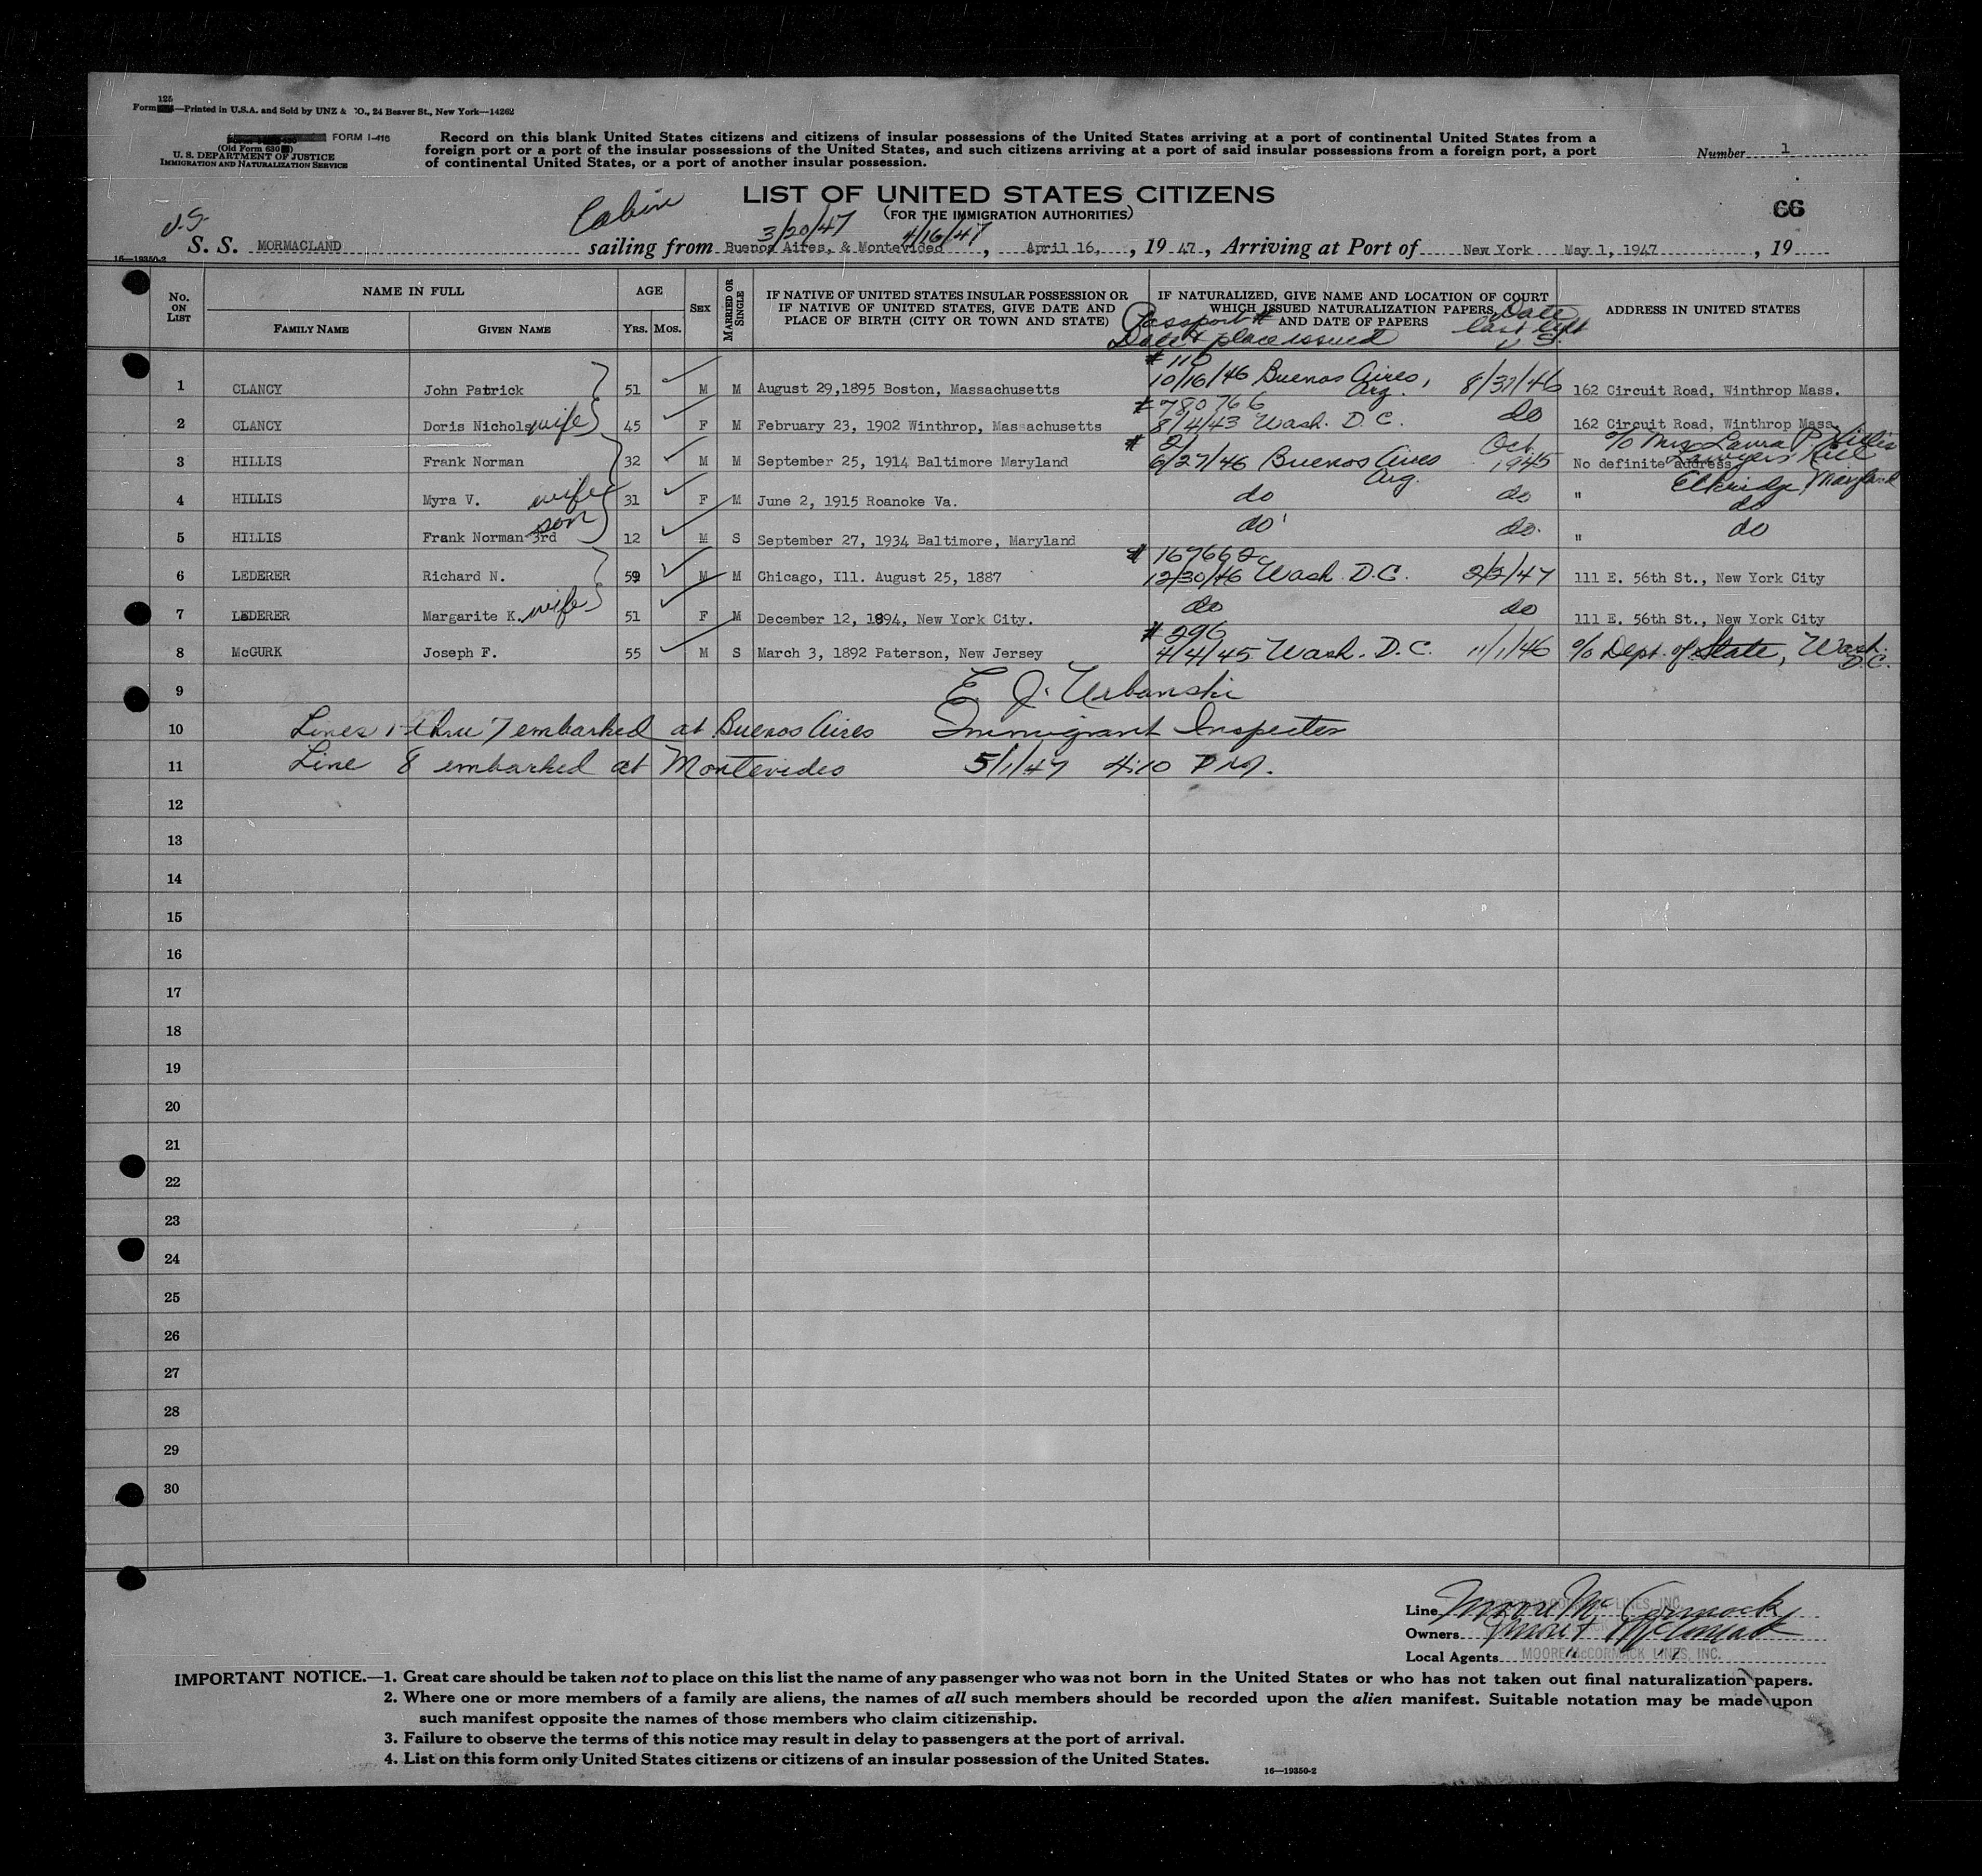 125
Form —Printed in U.S.A. and Sold by UNZ & CO., 24 Beaver St., New York—14262
FORM I-416
(Old Form 630 )
U. S. DEPARTMENT OF JUSTICE
IMMIGRATION AND NATURALIZATION SERVICE
Record on this blank United States citizens and citizens of insular possessions of the United States arriving at a port of continental United States from a
foreign port or a port of the insular possessions of the United States, and such citizens arriving at a port of said insular possessions from a foreign port, a port
of continental United States, or a port of another insular possession.
Number 1
LIST OF UNITED STATES CITIZENS
(FOR THE IMMIGRATION AUTHORITIES)
66
U.S. Cabin 3/20/47 4/16/47
S. S. MORMACLAND sailing from Buenos Aires, & Montevideo, April 16, , 19 47, Arriving at Port of New York May 1, 1947 , 19
16—19350-2
No. ON LIST
NAME IN FULL
FAMILY NAME
GIVEN NAME
AGE
YRS. MOS.
SEX
MARRIED OR SINGLE
IF NATIVE OF UNITED STATES INSULAR POSSESSION OR
IF NATIVE OF UNITED STATES, GIVE DATE AND
PLACE OF BIRTH (CITY OR TOWN AND STATE)
IF NATURALIZED, GIVE NAME AND LOCATION OF COURT
WHICH ISSUED NATURALIZATION PAPERS,
AND DATE OF PAPERS
Passport #
Date & place issued
Date last left U S.
ADDRESS IN UNITED STATES
#110
1 CLANCY John Patrick 51 M M August 29,1895 Boston, Massachusetts 10/16/46 Buenos Aires, Arg. 8/31/46 162 Circuit Road, Winthrop Mass.
#780766
2 CLANCY Doris Nichols wife 45 F M February 23, 1902 Winthrop, Massachusetts 8/4/43 Wash. D.C. do 162 Circuit Road, Winthrop Mass.
# 21
3 HILLIS Frank Norman 32 M M September 25, 1914 Baltimore Maryland 6/27/46 Buenos Aires Arg. Oct. 1945 No definite address
c/o Mrs. Laura P. Hillis
Lawyers Hill
Elkridge, Maryland
4 HILLIS Myra V. wife 31 F M June 2, 1915 Roanoke Va. do do " do
5 HILLIS Frank Norman 3rd son 12 M S September 27, 1934 Baltimore, Maryland do do. " do
# 167662
6 LEDERER Richard N. 59 M M Chicago, Ill. August 25, 1887 12/30/46 Wash. D.C. 2/2/47 111 E. 56th St., New York City
7 LEDERER Margarite K. wife 51 F M December 12, 1894, New York City. do do 111 E. 56th St., New York City
# 296
8 McGURK Joseph F. 55 M S March 3, 1892 Paterson, New Jersey 4/4/45 Wash. D.C. 11/1/46 c/o Dept. of State, Wash. D.C.
9 E. J. Urbanski
10 Lines 1 thru 7 embarked at Buenos Aires Immigrant Inspector
11 Line 8 embarked at Montevideo 5/1/47 4:10 PM.
12
13
14
15
16
17
18
19
20
21
22
23
24
25
26
27
28
29
30
Line Moore McCormack
Owners Moore McCormack
Local Agents MOORE McCORMACK LINES, INC.
IMPORTANT NOTICE.—1. Great care should be taken not to place on this list the name of any passenger who was not born in the United States or who has not taken out final naturalization papers.
2. Where one or more members of a family are aliens, the names of all such members should be recorded upon the alien manifest. Suitable notation may be made upon
such manifest opposite the names of those members who claim citizenship.
3. Failure to observe the terms of this notice may result in delay to passengers at the port of arrival.
4. List on this form only United States citizens or citizens of an insular possession of the United States.
16—19350-2